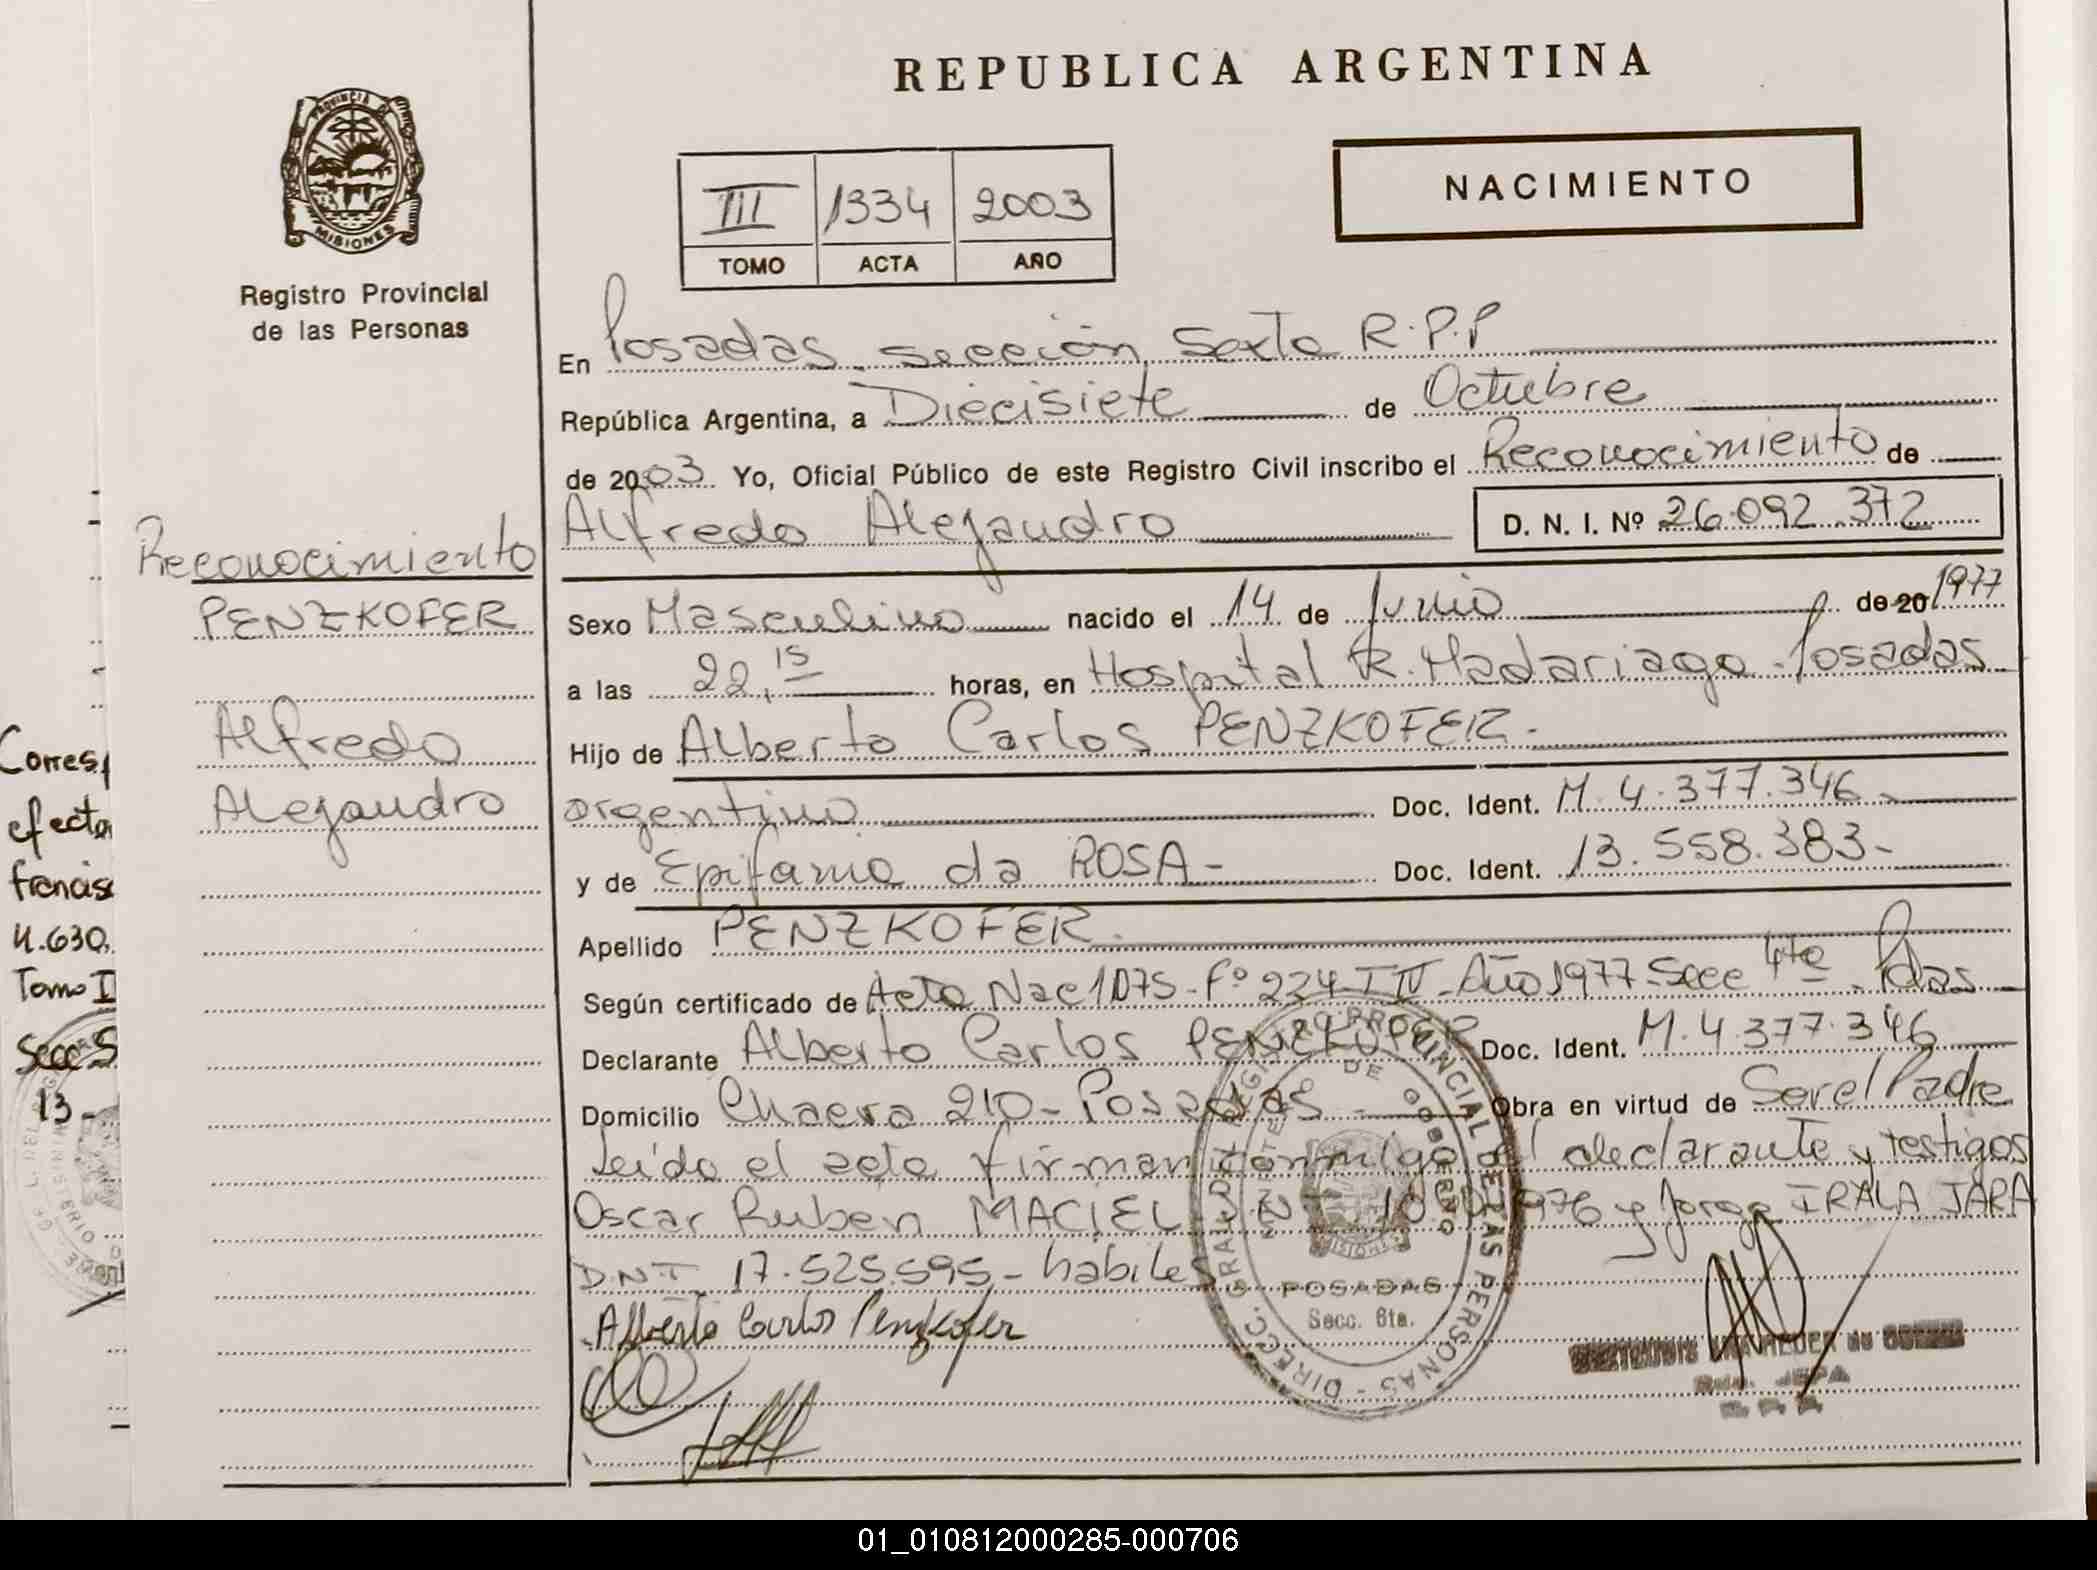 REPUBLICA ARGENTINA
PROVINCIA DE
MISIONES
Registro Provincial
de las Personas
III 1334 2003
TOMO ACTA AÑO
NACIMIENTO
En Posadas sección Sexta R.P.P
República Argentina, a Diecisiete de Octubre
de 2003 Yo, Oficial Público de este Registro Civil inscribo el Reconocimiento de
Alfredo Alejandro D. N. I. Nº 26.092.372
Reconocimiento
PENZKOFER
Alfredo
Alejandro
Sexo Masculino nacido el 14 de Junio de 20 1977
a las 22,15 horas, en Hospital R. Madariaga - Posadas
Hijo de Alberto Carlos PENZKOFER.
argentino Doc. Ident. M. 4.377.346
y de Epifania da ROSA - Doc. Ident. 13.558.383-
Apellido PENZKOFER.
Según certificado de Acta Nac 1075 - Fº 224 T IV - Año 1977 - Secc 4ta - Pdas
Declarante Alberto Carlos PENZKOFER Doc. Ident. M. 4.377.346
Domicilio 210 - Posadas Obra en virtud de Ser el Padre
Leído el acta firman conmigo el declarante y testigos
Oscar Ruben MACIEL y Jorge IRALA JARA
D.N.I 17.525.595 - habiles
Alberto Carlos Penzkofer
DIRECC. GRAL. DEL REGISTRO PROVINCIAL DE LAS PERSONAS
DE GOBIERNO
POSADAS
Secc. 6ta.
Corresp
efectua
francisc
4.630,
Tomo I
Secc S
13-
01_010812000285-000706